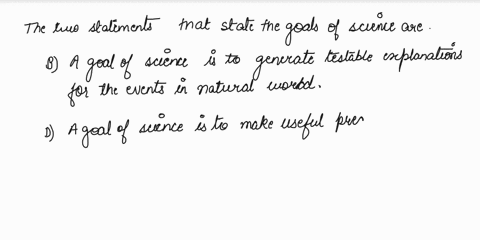 The two statements that state the goals of science are.
B) A goal of science is to generate testable explanations
for the events in natural world.
D) A goal of science is to make useful pre